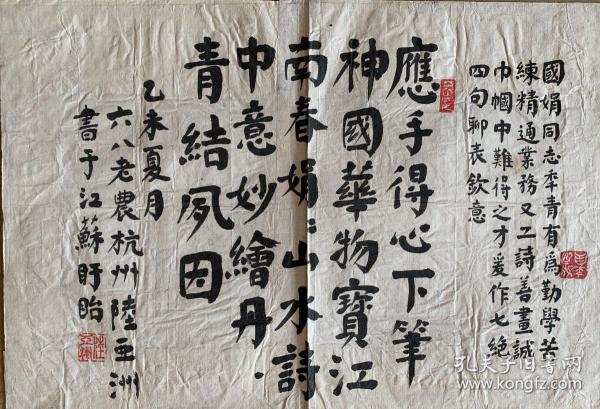 國娟同志年青有為勤學苦
練精通業務又工詩善畫誠
巾幗中難得之才爰作七絕
四句聊表欽意
應手得心下筆
神國華物寶江
南春娟〻山水詩
中意妙繪丹
青結夙因
乙未夏月
六八老農杭州陸亚洲
書于江蘇盱眙
孔夫子旧书网
www.kongfz.com